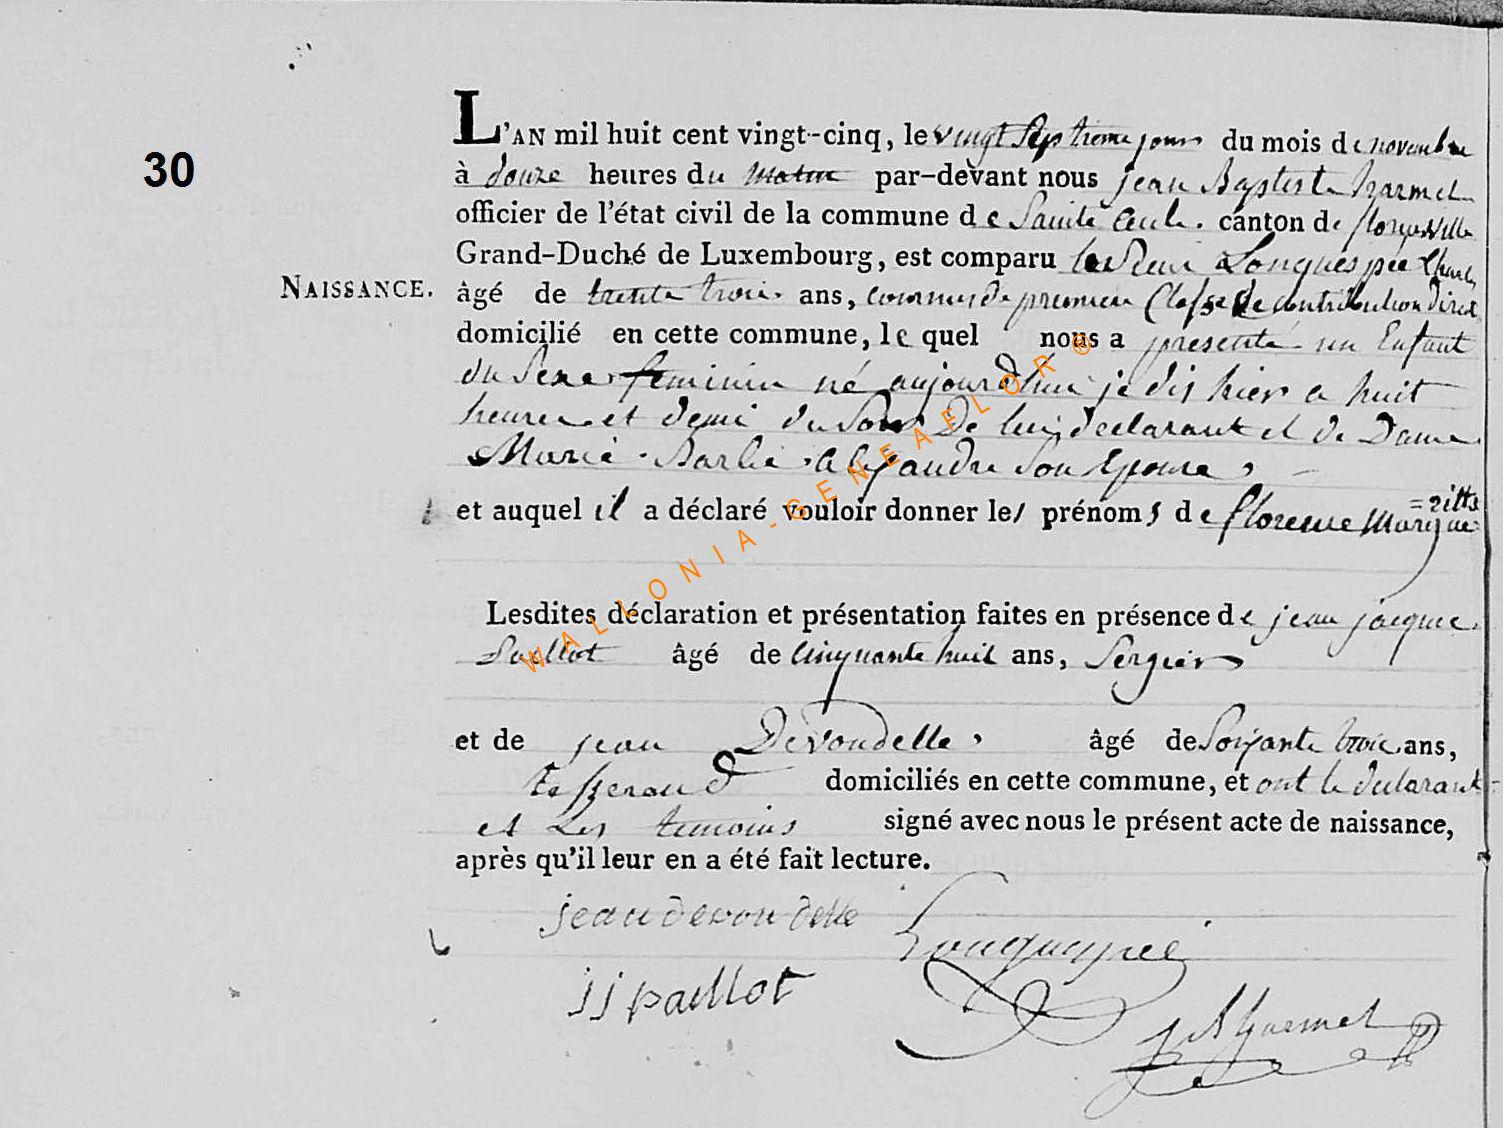 30
L'AN mil huit cent vingt-cinq, le vingt septieme jour du mois de novembre
à douze heures du matin par-devant nous jean Baptiste harmel
officier de l'état civil de la commune de Sainte Cecile. canton de florenville
Grand-Duché de Luxembourg, est comparu le Sieur Longuespée Charles
NAISSANCE.
âgé de trente trois ans, commis de premiere Classe de contribution direct
domicilié en cette commune, le quel nous a presenté un Enfant
du Sexe feminin né aujourd'hui je dis hier a huit
heures et demi du Soir De lui declarant et de Dame
Marie Barbe Alexandre Son Epouse,
et auquel il a déclaré vouloir donner les prénoms de florence Margue
=ritts
Lesdites déclaration et présentation faites en présence de jean jacque
Paillot âgé de cinquante huit ans, Sergier
et de jean Devondelle, âgé de Soixante trois ans,
tisserand domiciliés en cette commune, et ont le declarant
et Les temoins signé avec nous le présent acte de naissance,
après qu'il leur en a été fait lecture.
jean devondelle
Longuespée
jj paillot
j B harmel
WALLONIA-GENEAFLOR ®